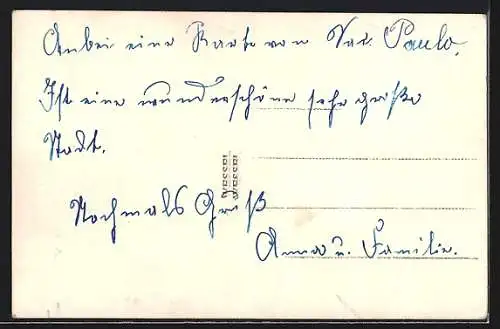 Anbei eine Karte von Sao Paulo.
Ist eine wunderschöne sehr große
Stadt.
WESSEL
WESSEL
Nochmals Gruß
Anna u. Familie.